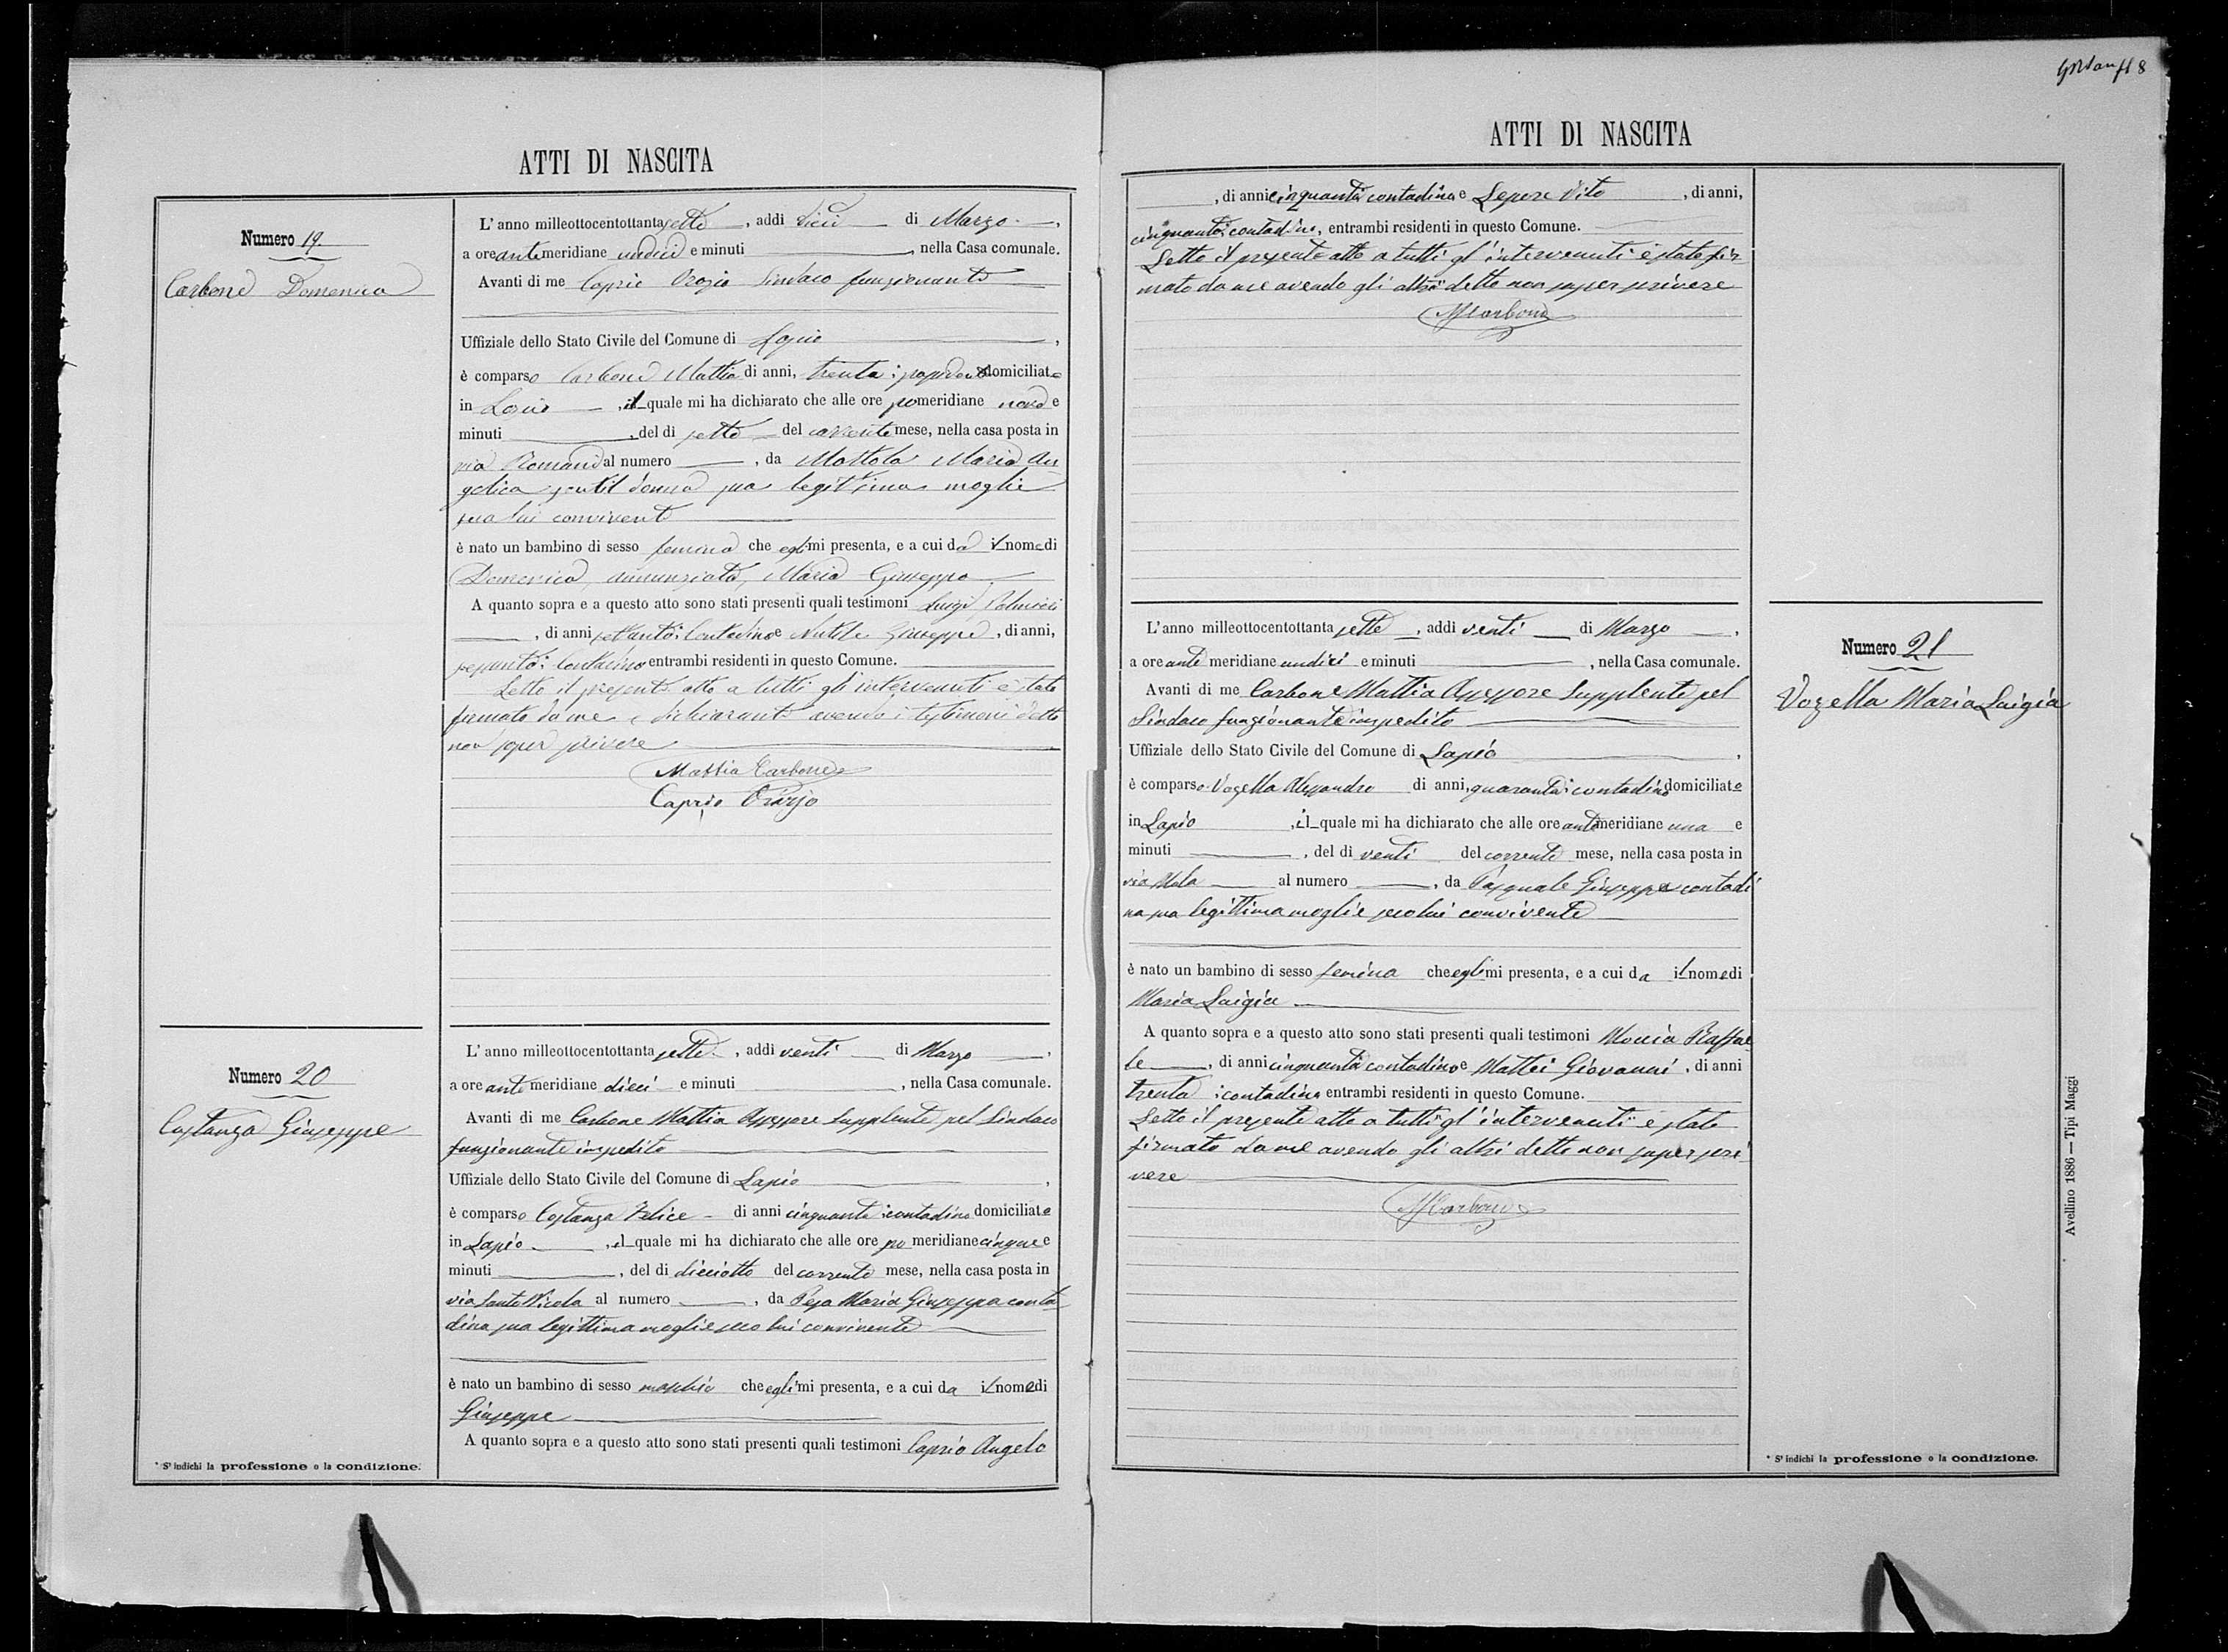 8
ATTI DI NASCITA
Numero 19.
Carbone Domenica
L'anno milleottocentottantasette, addi dieci di Marzo,
a ore antemeridiane undici e minuti , nella Casa comunale.
Avanti di me Caprio Orazio Sindaco funzionante
Uffiziale dello Stato Civile del Comune di Lapio,
è comparso Carbone Mattia di anni, trenta: domiciliato
in Lapio, il quale mi ha dichiarato che alle ore pomeridiane nove e
minuti , del di sette del corrente mese, nella casa posta in
via Romano al numero , da Mottola Maria An
gelica gentil donna sua legittima moglie
seco lui convivente
è nato un bambino di sesso femina che egli mi presenta, e a cui da il nome di
Domenica, Annunziata, Maria Giuseppa
A quanto sopra e a questo atto sono stati presenti quali testimoni Luigi
, di anni settanta: Contadino e Giuseppe, di anni,
sessanta: Contadino entrambi residenti in questo Comune.
Letto il presente atto a tutti gli intervenuti è stato
firmato da me e dichiarante avendo i testimoni detto
non saper scrivere
Mattia Carbone
Caprio Orazio
Numero 20
Costanza Giuseppe
L'anno milleottocentottantasette, addi venti di Marzo,
a ore ante meridiane dieci e minuti , nella Casa comunale.
Avanti di me Carbone Mattia Assessore Supplente pel Sindaco
funzionante impedito
Uffiziale dello Stato Civile del Comune di Lapio,
è comparso Costanza Felice di anni cinquanta: contadino domiciliato
in Lapio, il quale mi ha dichiarato che alle ore po meridiane cinque e
minuti , del di dieciotto del corrente mese, nella casa posta in
via Santo Nicola al numero , da Pepa Maria Giuseppa conta
dina sua legittima moglie seco lui convivente
è nato un bambino di sesso maschio che egli mi presenta, e a cui da il nome di
Giuseppe
A quanto sopra e a questo atto sono stati presenti quali testimoni Caprio Angelo
* S' indichi la professione o la condizione.
ATTI DI NASCITA
, di anni cinquanta contadino e Lepore Vito, di anni,
cinquanta: contadino, entrambi residenti in questo Comune.
Letto il presente atto a tutti gl'intervenuti è stato fir
mato da me avendo gli altri detto non saper scrivere
MCarbone
L'anno milleottocentottantasette, addi venti di Marzo,
a ore ante meridiane undici e minuti , nella Casa comunale.
Avanti di me Carbone Mattia Assessore Supplente pel
Sindaco funzionante impedito
Uffiziale dello Stato Civile del Comune di Lapio,
è comparso Vozella Alessandro di anni, quaranta: contadino domiciliato
in Lapio, il quale mi ha dichiarato che alle ore antimeridiane una e
minuti , del di venti del corrente mese, nella casa posta in
via Mola al numero , da Pasquale Giuseppa contadi
na sua legittima moglie seco lui convivente
è nato un bambino di sesso femina che egli mi presenta, e a cui da il nome di
Maria Luigia
A quanto sopra e a questo atto sono stati presenti quali testimoni Raffae
le, di anni cinquanta contadino e Mattei Giovanni, di anni
trenta: contadino entrambi residenti in questo Comune.
Letto il presente atto a tutti gl'intervenuti è stato
firmato da me avendo gli altri detto non saper scri
vere
MCarbone
Numero 21
Vozella Maria Luigia
Avellino 1886 — Tipi Maggi
* S' indichi la professione o la condizione.